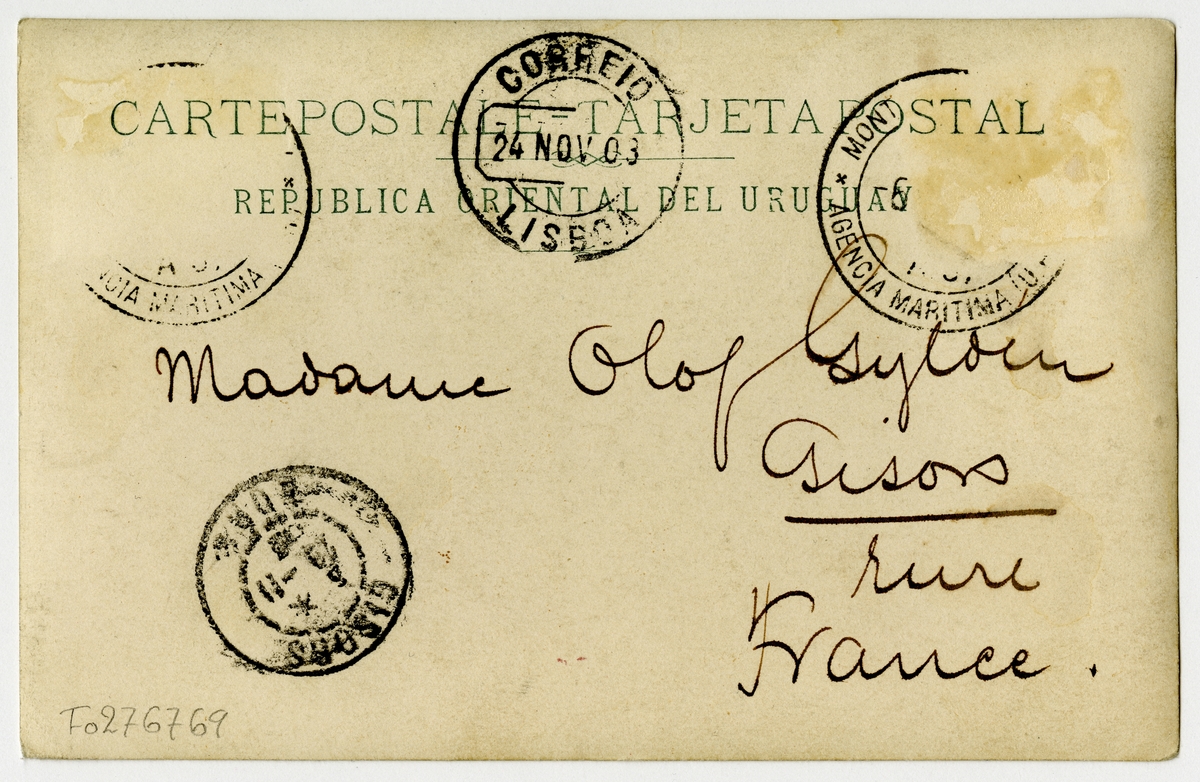 CARTE POSTALE - TARJETA POSTAL
REPUBLICA ORIENTAL DEL URUGUAY
CORREIO
24 NOV 03
LISBOA
MONT
6
* AGENCIA MARITIMA
NCIA MARITIMA
Madame Olof Gylden
Gisors
Eure
France.
GISORS
EURE
Fo276769